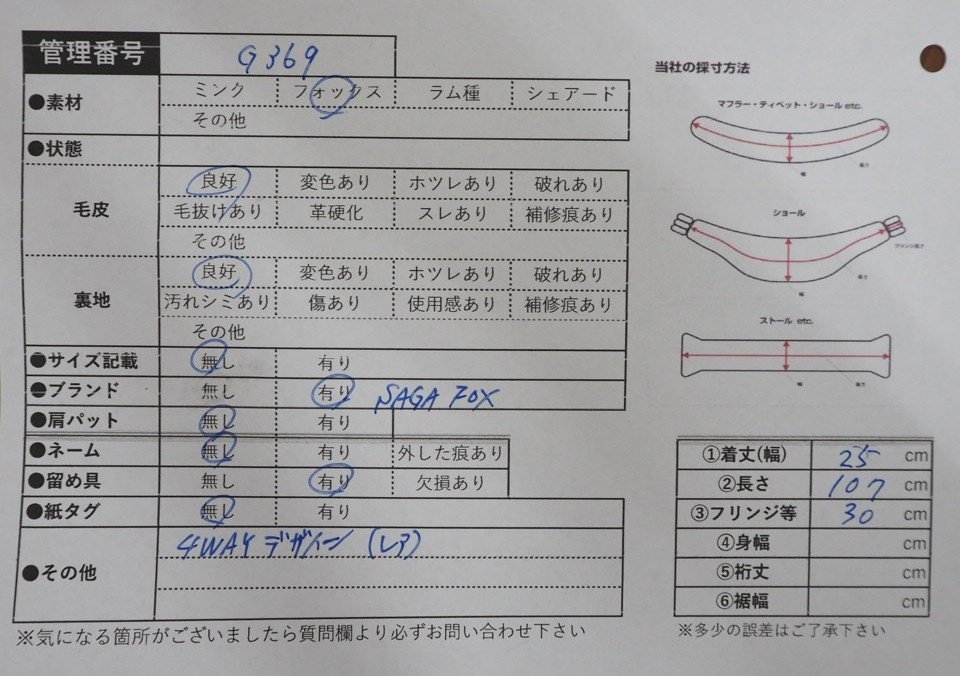 管理番号 G369
●素材 ミンク フォックス ラム種 シェアード
その他
●状態
毛皮 良好 変色あり ホツレあり 破れあり
毛抜けあり 革硬化 スレあり 補修痕あり
その他
裏地 良好 変色あり ホツレあり 破れあり
汚れシミあり 傷あり 使用感あり 補修痕あり
その他
●サイズ記載 無し 有り
●ブランド 無し 有り SAGA FOX
●肩パット 無し 有り
●ネーム 無し 有り 外した痕あり
●留め具 無し 有り 欠損あり
●紙タグ 無し 有り
●その他 4WAY デザイン (レア)
※気になる箇所がございましたら質問欄より必ずお問い合わせ下さい
当社の採寸方法
マフラー・ティペット・ショール etc.
長さ
幅
ショール
フリンジ長さ
長さ
幅
ストール etc.
幅 長さ
①着丈(幅) 25 cm
②長さ 107 cm
③フリンジ等 30 cm
④身幅 cm
⑤裄丈 cm
⑥裾幅 cm
※多少の誤差はご了承下さい